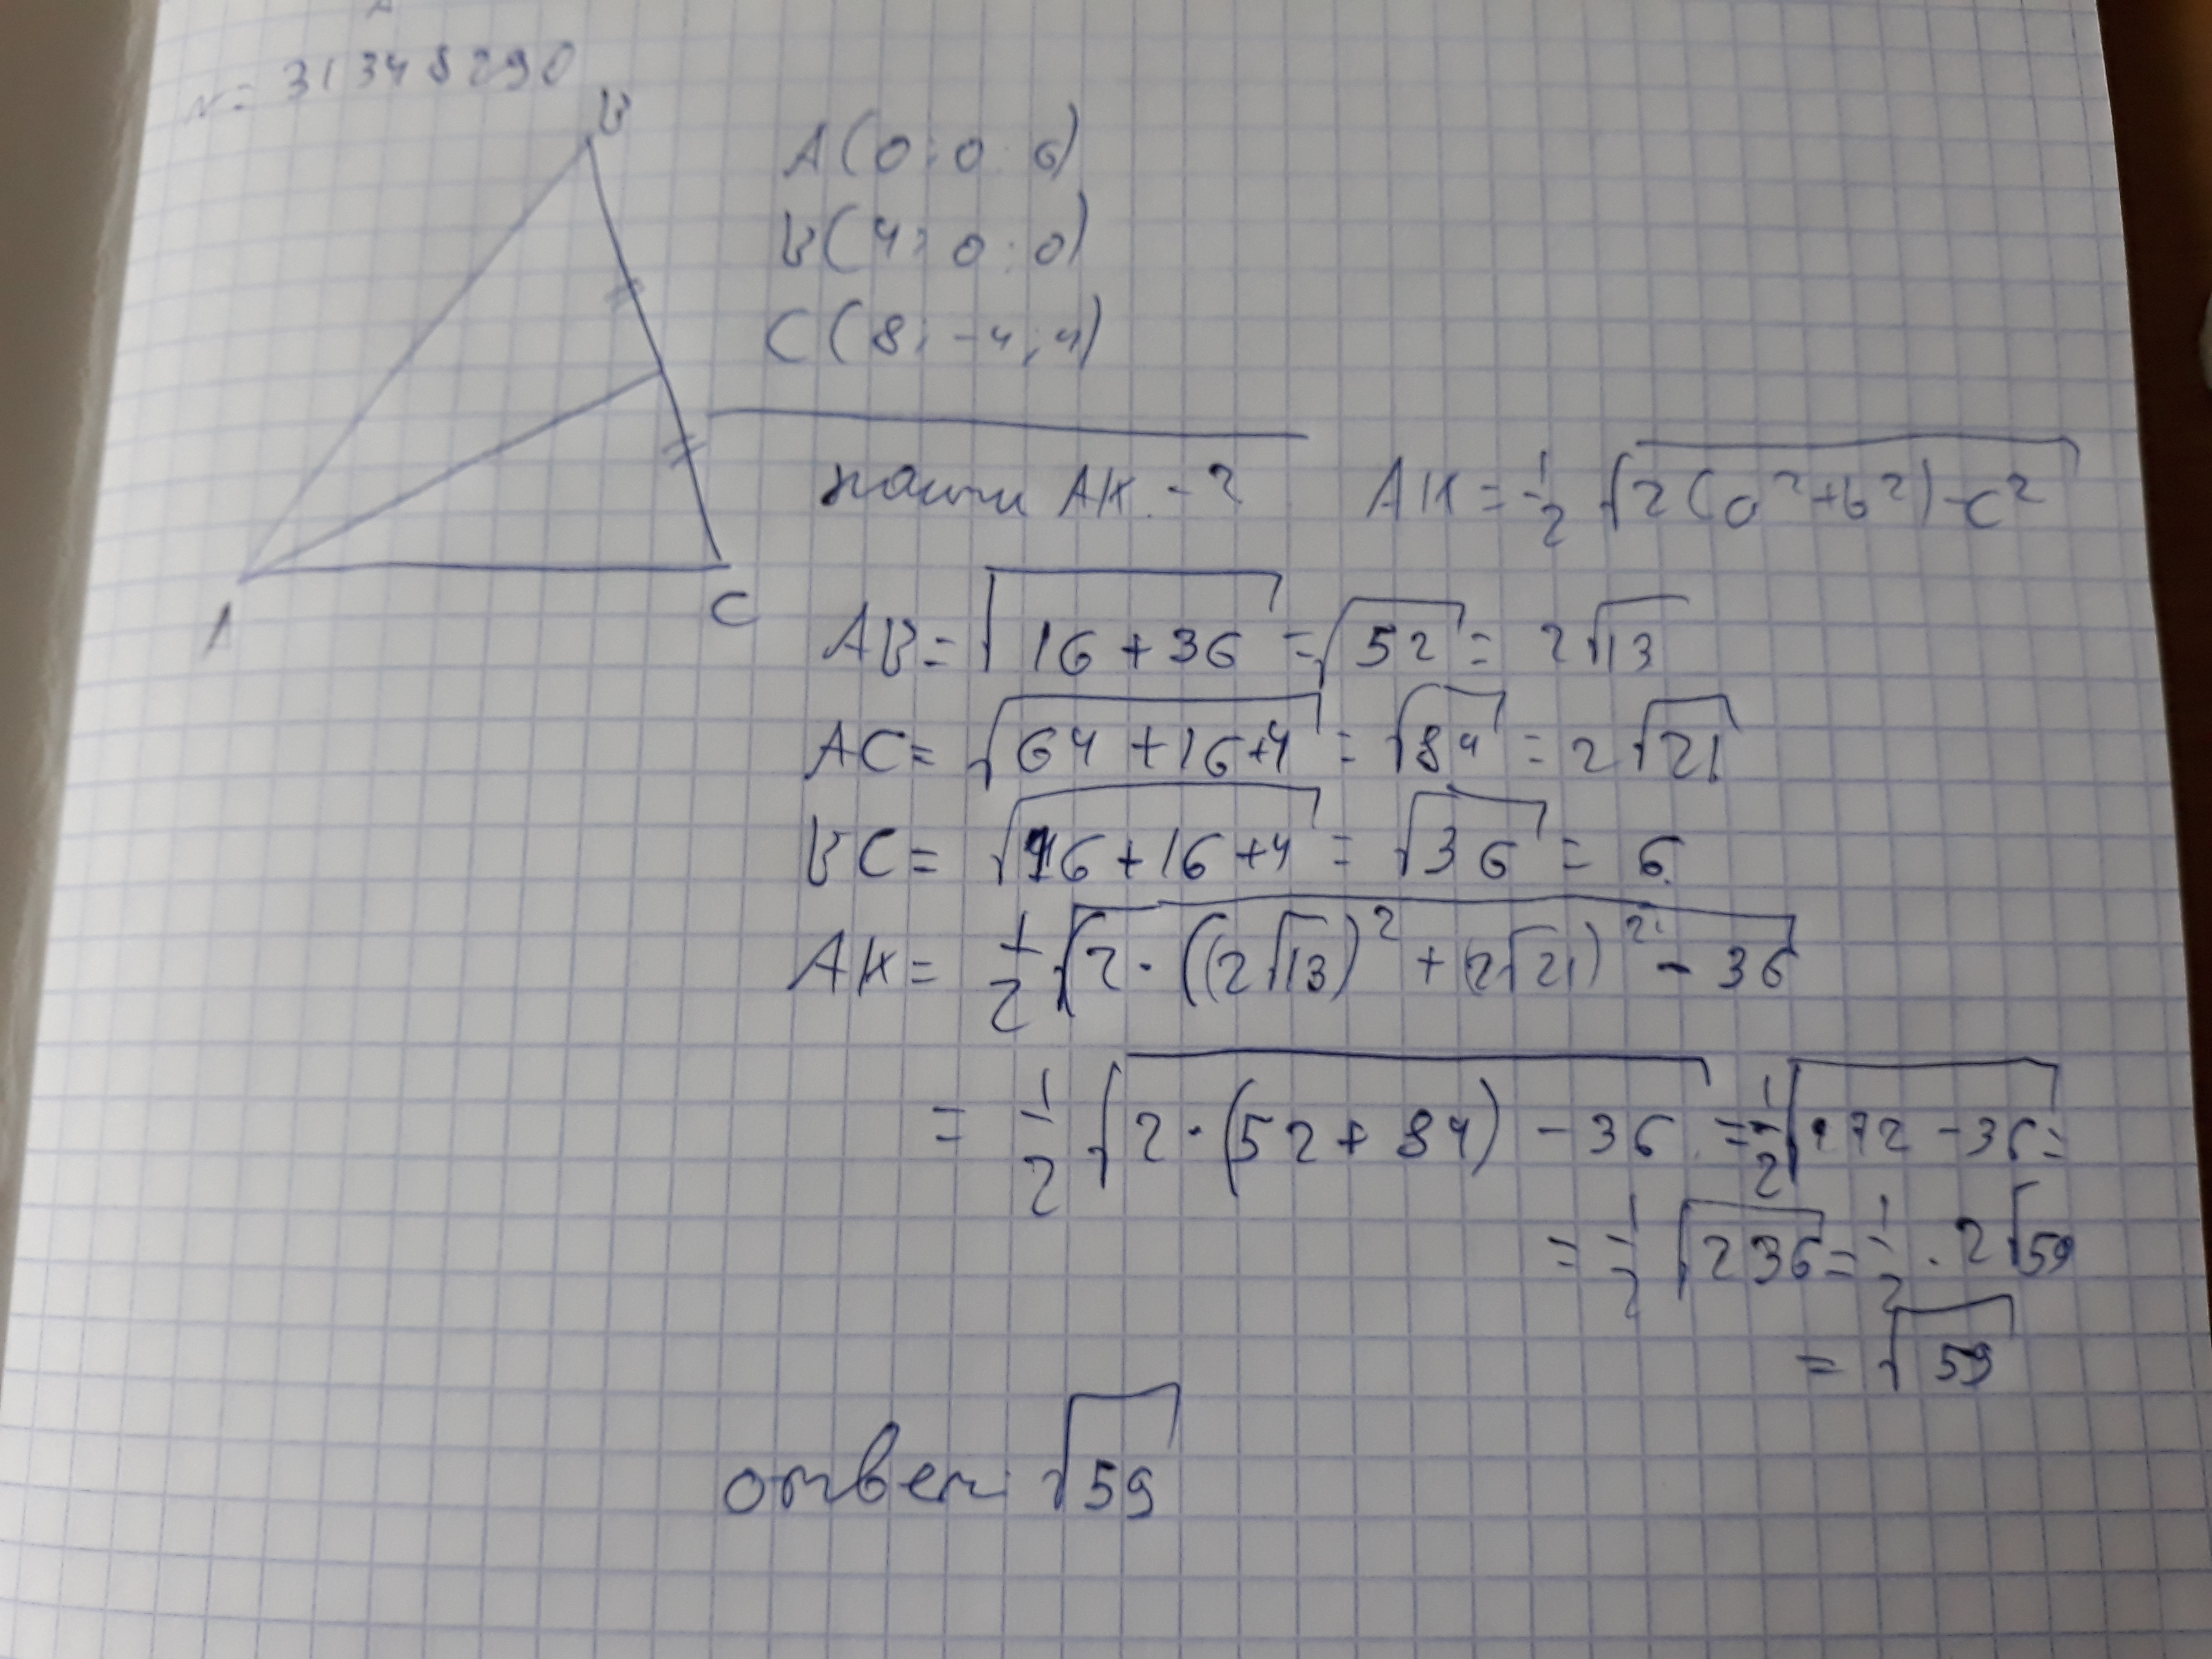 N = 31348290
B
A(0; 0; 6)
B(4; 0; 0)
C(8; -4; 4)
найти AK - ? AK = 1/2 √(2(a² + b²) - c²)
A
C
AB = √(16 + 36) = √52 = 2√13
AC = √(64 + 16 + 4) = √84 = 2√21
BC = √(16 + 16 + 4) = √36 = 6
AK = 1/2 √(2 · ((2√13)² + (2√21)² - 36
= 1/2 √(2 · (52 + 84) - 36 = 1/2 √(272 - 36) =
= 1/2 √236 = 1/2 · 2√59
= √59
ответ: √59